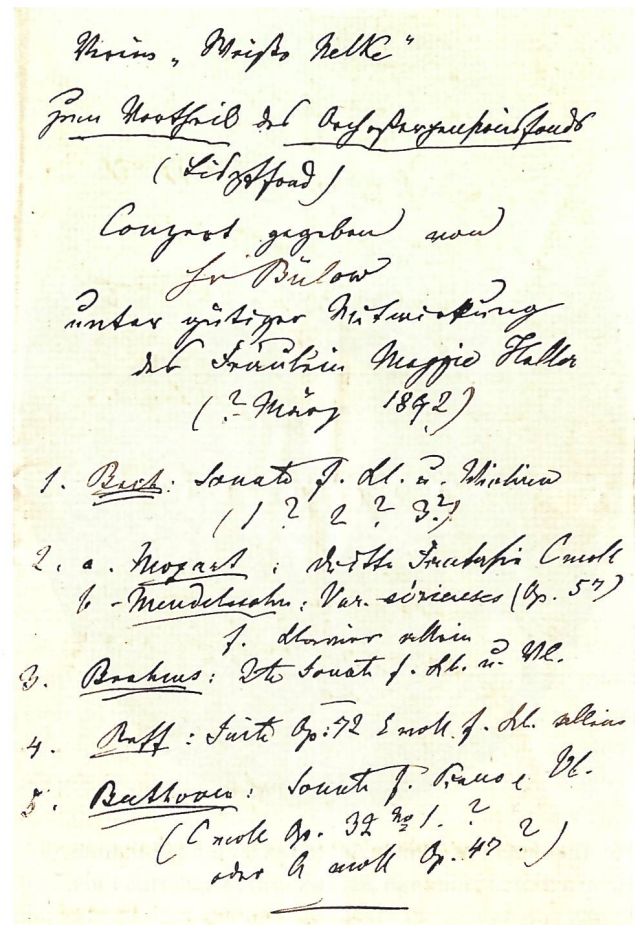 Verein „Weiße Nelke"
zum Vortheil des Orchesterpensionsfonds
(Lisztfond)
Conzert gegeben von
Hr Bülow
unter gütiger Mitwirkung
des Fräulein Maggie
(? März 1892)
1. Bach: Sonate f. Kl. u. Violine
(1 ? 2 ? 3?)
2. a. Mozart: dritte Fantasie C moll
b - Mendelssohn: Var. sérieuses (Op. 57)
f. Clavier allein
3. Brahms: 2te Sonate f. Kl. u. Vl.
4. Raff: Suite Op: 72 E moll f. Kl. allein
5. Beethoven: Sonate f. Piano e Vl.
(C moll Op. 32 No 1. ?
oder A moll Op. 47 ?)